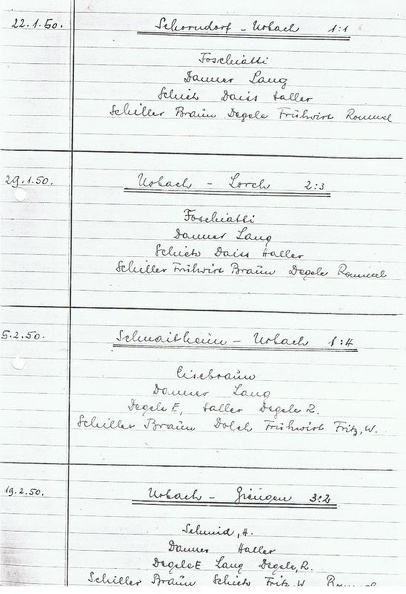 22.1.50. Schorndorf - Urbach 1:1
Foschiatti
Danner Lang
Schiek Daiss Haller
Schiller Braun Degele Frühwirt Rommel
29.1.50. Urbach - Lorch 2:3
Foschiatti
Danner Lang
Schiek Daiss Haller
Schiller Frühwirt Braun Degele Rommel
5.2.50. Schnaitheim - Urbach 1:4
Eisebraun
Danner Lang
Degele E, Haller Degele R.
Schiller Braun Dolch Frühwirt Fritz, W.
19.2.50. Urbach - Giengen 3:2
Schmid, H.
Danner Haller
Degele E Lang Degele, R.
Schiller Braun Schiek Fritz, W Rommel